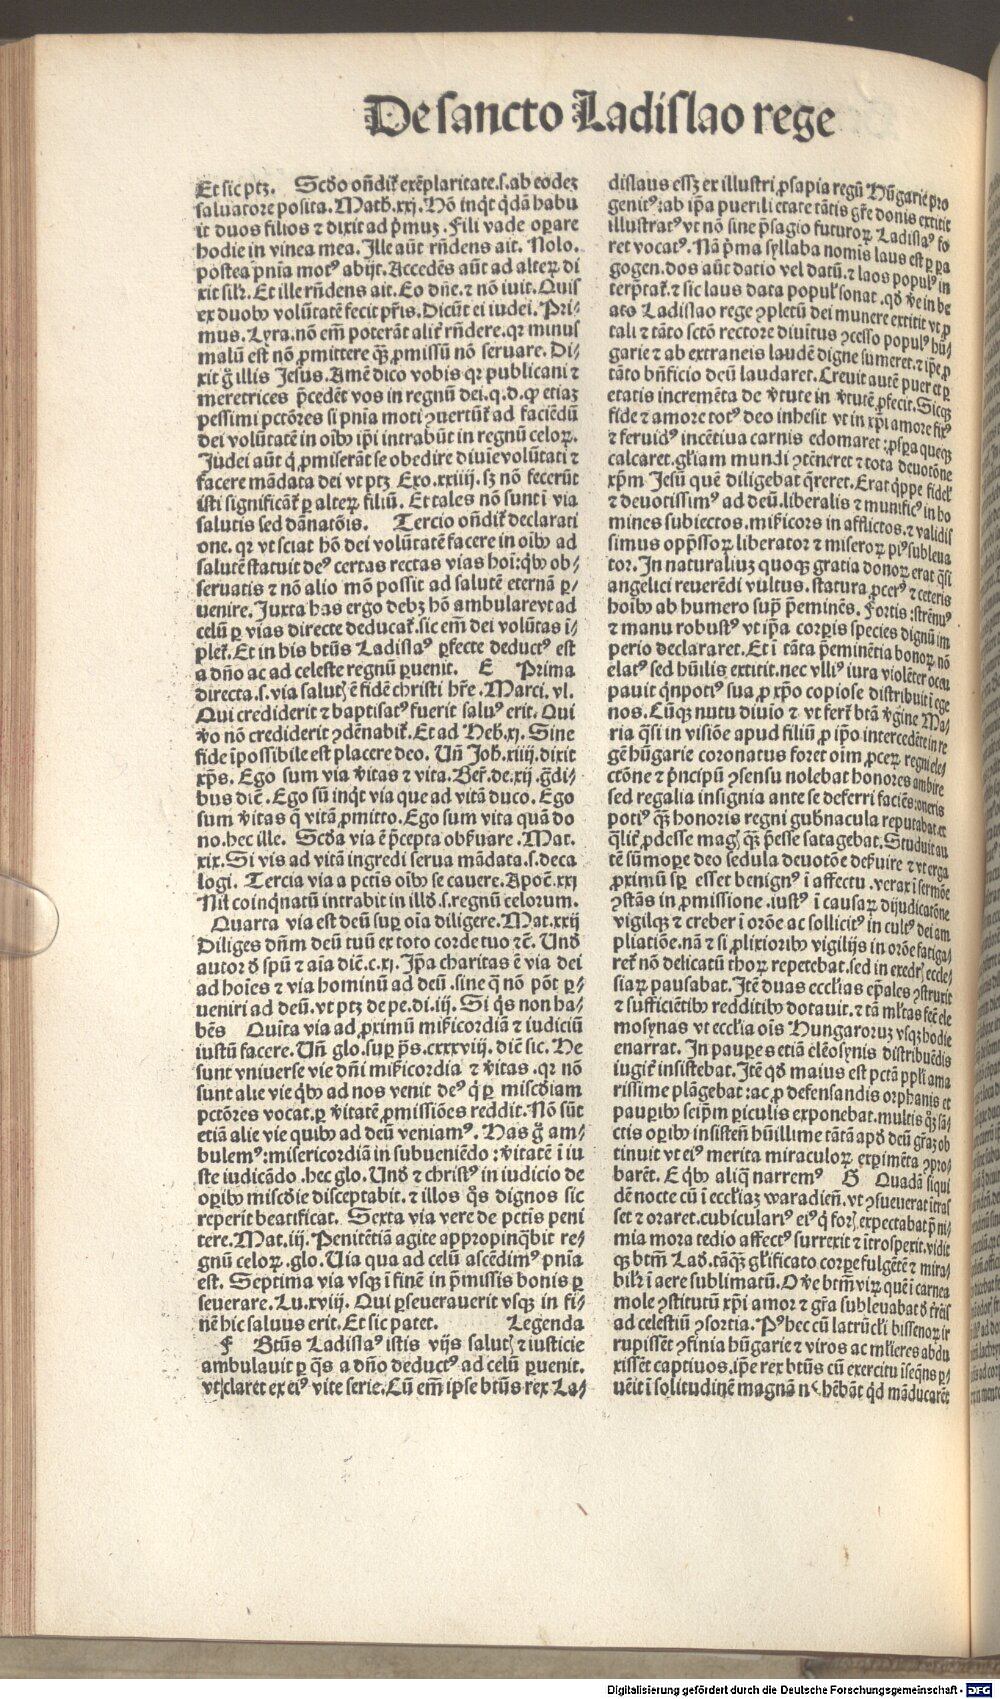 De sancto Ladislao rege
Et sic ptꝫ. Scd̓o on̄dit̉ exēplaritate.s.ab eodeꝫ
saluatore posita. Math̓.xxi. Hō inqͭ qͥdā habu
it duos filios ⁊ dixit ad pͥmuꝫ. Fili vade oꝑare
hodie in vinea mea. Ille aūt rn̄dens ait. Nolo.
postea pn̄ia motꝰ abijt. Accedēs aūt ad alteꝝ di
xit sil̉r. Et ille rn̄dens ait. Eo dn̄e. ⁊ nō iuit. Quis
ex duobꝰ volūtatē fecit pr̄is. Dicūt ei iudei. Pri⸗
mus. Lyra. nō em̄ poterāt alit̉ rn̄dere. qꝛ minus
malū est nō ꝓmittere qͣꝫ ꝓmissū nō seruare. Di⸗
xit gͦ illis Jesus. Amē dico vobis qꝛ publicani ⁊
meretrices p̄cedēt vos in regnū dei.q.d.ꝙ etiaꝫ
pessimi pctōres si pn̄ia moti ꝯuertūt̉ ad faciēdū
dei volūtatē in oībꝰ ip̄i intrabūt in regnū celoꝝ.
Judei aūt qͥ ꝓmiserāt se obedire diuīe volūtati ⁊
facere mādata dei vt ptꝫ Exo.xxiiij. sꝫ nō fecerūt
isti significāt̉ ꝑ alteꝝ filiū. Et tales nō sunt ī via
salutis sed dānatōis. Tercio on̄dit̉ declarati
one. qꝛ vt sciat hō dei volūtatē facere in oībꝰ ad
salutē statuit deꝰ certas rectas vias hoīꝫ qͥbꝰ ob⸗
seruatis ⁊ nō alio mō possit ad salutē eternā ꝑ⸗
uenire. Juxta has ergo debꝫ hō ambulare vt ad
celū ꝑ vias directe deducat̉. sic em̄ dei volūtas ī⸗
plet̉. Et in his btūs Ladislaꝰ ꝑfecte deductꝰ est
a dn̄o ac ad celeste regnū ꝑuenit. E Prima
directa.s.via salutꝭ ē fidē christi hr̄e. Marci.vl.
Qui crediderit ⁊ baptisatꝰ fuerit saluꝰ erit. Qui
v̓o nō crediderit ꝯdēnabit̉. Et ad Heb̓.xj. Sine
fide īpossibile est placere deo. Un̄ Joh̓.xiiij. dixit
xp̄s. Ego sum via v̓itas ⁊ vita. Ber̉.de.xij.gͣdi⸗
bus diē. Ego sū inqͭ via que ad vitā duco. Ego
sum v̓itas q̄ vitā ꝓmitto. Ego sum vita quā do
no. hec ille. Scd̓a via ē p̄cepta obs̓uare. Mat.
xix. Si vis ad vitā ingredi serua mādata.s.deca
logi. Tercia via a pctīs oībꝰ se cauere. Apoc̄.xxi
Nil̉ coinqͥnatū intrabit in illd̓.s.regnū celorum.
Quarta via est deū suꝑ oīa diligere. Mat.xxij
Diliges dn̄m deū tuū ex toto corde tuo ⁊c̄. Und̓
autor d̓ spū ⁊ aīa diē.c.xj. Ip̄a charitas ē via dei
ad hoīes ⁊ via hominū ad deū. sine qͣ nō pōt ꝑ⸗
ueniri ad deū. vt ptꝫ de pe.di.iij. Si qͥs non ha⸗
bēs Quīta via ad ꝓximū mīcordiā ⁊ iudiciū
iustū facere. Un̄ glo.suꝑ pͫs.cxxxviij. diē sic. Ne
sunt vniuerse vie dn̄i mīcordia ⁊ v̓itas. qꝛ nō
sunt alie vie qͥbꝰ ad nos venit deꝰ qͥ ꝑ miscd̓iam
pctōres vocat. ꝑ v̓itatē ꝓmissiōes reddit. Nō sūt
etiā alie vie quibꝰ ad deū veniamꝰ. Has gͦ am⸗
bulemꝰ: misericordiā in subueniēdo: v̓itatē ī iu
ste iudicādo. hec glo. Und̓ ⁊ christꝰ in iudicio de
oꝑibꝰ miscd̓ie disceptabit. ⁊ illos qͦs dignos sic
reperit beatificat. Sexta via vere de pctīs peni
tere. Mat.iij. Penitētiā agite appropinqͣbit re⸗
gnū celoꝝ. glo. Uia qua ad celū ascēdimꝰ pn̄ia
est. Septima via vsqꝫ ī finē in p̄missis bonis ꝑ
seuerare. Lu.xviij. Qui ꝑseuerauerit vsqꝫ in fi⸗
nē hic saluus erit. Et sic patet. Legenda
F Btūs Ladislaꝰ istis vijs salutꝭ ⁊ iusticie
ambulauit ꝑ qͣs a dn̄o deductꝰ ad celū ꝑuenit.
vt claret ex eiꝰ vite serie. Cū em̄ ipse btūs rex La⸗
dislaus essꝫ ex illustri ꝓsapia regū Hūgarie pro
genitꝰ: ab ip̄a puerili etate tātis gr̄e donis extitit
illustratꝰ vt nō sine p̄sagio futuroꝝ Ladislaꝰ fo
ret vocatꝰ. Nā pͥma syllaba nomīs laus est ꝑ pa
gogen. dos aūt datio vel datū. ⁊ laos populꝰ in
terp̄tat̉. ⁊ sic laus data populꝭ sonat. qd̓ v̓e in be
ato Ladislao rege ꝯpletū dei munere extitit vt ꝓ
tali ⁊ tāto sctō rectore diuītus ꝯcesso populꝰ hū⸗
garie ⁊ ab extraneis laudē digne sumeret. ⁊ ip̄e ꝓ
tāto bn̄ficio deū laudaret. Creuit autē puer et ꝑ
etatis incremēta de v̓tute in v̓tutē ꝓfecit. Sicqꝫ
fide ⁊ amore totꝰ deo inhesit vt in xp̄i amore fixꝰ
⁊ feruidꝰ incētiua carnis edomaret: ꝓspa queqꝫ
calcaret. gl̉iam mundi ꝯtēneret ⁊ tota deuotōne
xp̄m Jesū quē diligebat q̄reret. Erat qͥppe fidel̉
⁊ deuotissimꝰ ad deū. liberalis ⁊ munificꝰ in ho
mines subiectos. mīcors in afflictos. ⁊ validis
simus opp̄ssoꝝ liberator ⁊ miseroꝝ piꝰ subleua
tor. In naturaliuꝫ quoqꝫ gratia donoꝝ erat qͣsi
angelici reuerēdi vultus. statura ꝓcerꝰ ⁊ ceteris
hoībꝰ ab humero supͣ p̄eminēs. Fortis: strēnuꝰ
⁊ manu robustꝰ vt ip̄a corꝑis species dignū im
perio declararet. Et ī tāta p̄eminētia bonoꝝ nō
elatꝰ sed hūilis extitit. nec vlliꝰ iura violēter occu
pauit qͥnpotiꝰ sua ꝓ xp̄o copiose distribuit ī ege
nos. Cūqꝫ nutu diuīo ⁊ vt fert̉ btā v̓gine Ma⸗
ria qͣsi in visiōe apud filiū ꝓ ip̄o intercedēte in re
gē hūgarie coronatus foret oīm ꝓcerꝝ regni ele⸗
ctōne ⁊ pͥncipū ꝯsensu nolebat honores ambire
sed regalia insignia ante se deferri faciēs: oneris
potiꝰ qͣꝫ honoris regni gub̓nacula reputabat. et
qͣlit̉ ꝓdesse magꝭ qͣꝫ p̄esse satagebat. Studuit au
tē sūmope̓ deo sedula deuotōe des̓uire ⁊ vt erga
ꝓximū sꝑ esset benignꝰ ī affectu. verax ī sermōe
ꝯstās in ꝓmissione. iustꝰ ī causaꝝ dijudicatōne
vigilqꝫ ⁊ creber ī orōe ac sollicitꝰ in cultꝰ dei am
pliatiōe. nā ⁊ si ꝓlixioribꝰ vigilijs in orōe fatiga⸗
ret̉ nō delicatū thoꝝ repetebat. sed in exedrꝭ eccle⸗
siaꝝ pausabat. Itē duas eccl̉ias ep̄ales ꝯstruxit
⁊ sufficiētibꝰ redditibꝰ dotauit. ⁊ tā ml̉tas fec̄ ele
mosynas vt eccl̉ia oīs Hungaroruꝫ vsqꝫ hodie
enarrat. In pauꝑes etiā elēosynis distribuēdis
iugit̉ insistebat. Itē qd̓ maius est pctā ppl̉i ama
rissime plāgebat: ac ꝓ defensandis orphanis et
pauꝑibꝰ seip̄m ꝑiculis exponebat. multis qͦꝫ sā⸗
ctis oꝑibꝰ insisten̄ hūillime tātā apd̓ deū gr̄aꝫ ob
tinuit vt eiꝰ merita miraculoꝝ exꝑimēta ꝯpro⸗
barēt. E qͥbꝰ aliqͣ narremꝰ G Quadā siqui
dē nocte cū ī eccl̉iaꝫ waradien̄. vt ꝯsueuerat ītras
set ⁊ oraret. cubiculariꝰ eiꝰ qͥ forꝭ expectabat p̄ ni⸗
mia mora tedio affectꝰ surrexit ⁊ ītrospexit. vidit
qꝫ btm̄ Lad̓. tāqͣꝫ gl̉ificato corꝑe fulgētē ⁊ mira⸗
bil̉r ī aere sublimatū. O v̓e btm̄ viꝝ quē ī carnea
mole ꝯstitutū xp̄i amor ⁊ gr̄a subleuabat d̓ tr̄eis
ad celestiū ꝯsortia. Pꝰ hec cū latrūcl̉i bisseni oꝝ ir
rupissēt ꝯfinia hūgarie ⁊ viros ac ml̉ieres abdu
xissēt captiuos. ip̄e rex btūs cū exercitu īseqn̄s ꝑ⸗
uēit ī solitudinē magnā nec hēbāt qd̓ māducarēt
Digitalisierung gefördert durch die Deutsche Forschungsgemeinschaft - DFG